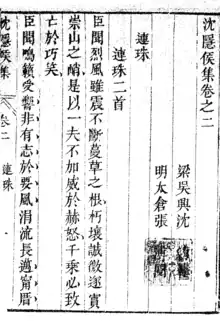 沈隱侯集卷之二
梁吳興沈
明太倉張
連珠
連珠二首
臣聞烈風雖震不斷蔓草之根朽壤誠微遂霣
崇山之峭是以一夫不加威於赫怒千乘必致
亡於巧笑
臣聞鳴籟受響非有志於要風涓流長邁寧厝
沈隱侯集
卷二
連珠